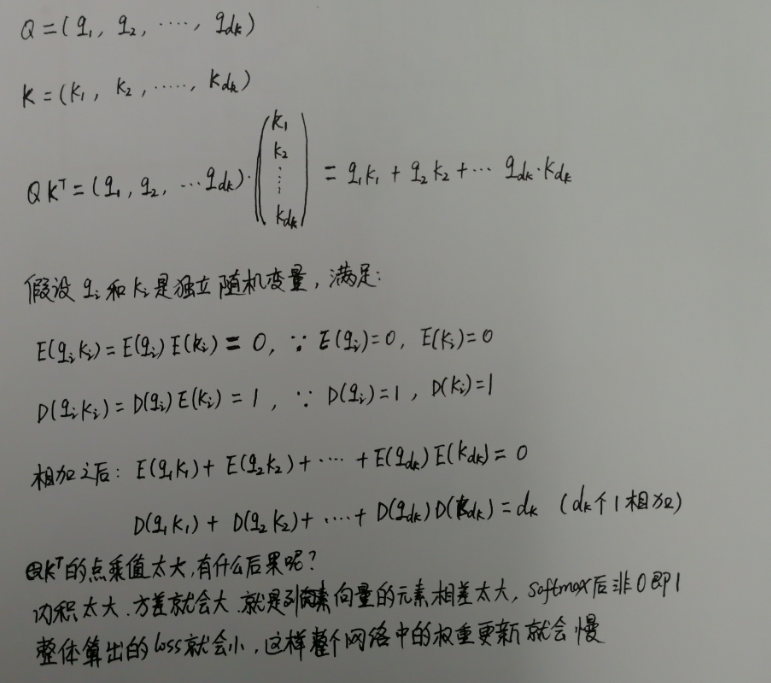 Q=(q₁, q₂, ..., q_dk)
K=(k₁, k₂, ....., k_dk)
QKᵀ=(q₁, q₂, ...q_dk)·(k₁ k₂ ⋮ k_dk) = q₁k₁ + q₂k₂ + ... q_dk·k_dk
假设 qᵢ 和 kᵢ 是独立随机变量, 满足:
E(qᵢkᵢ)=E(qᵢ)E(kᵢ) = 0, ∵ E(qᵢ)=0, E(kᵢ)=0
D(qᵢkᵢ)=D(qᵢ)E(kᵢ) = 1, ∵ D(qᵢ)=1, D(kᵢ)=1
相加之后: E(q₁k₁)+ E(q₂k₂)+ ... + E(q_dk)E(k_dk)=0
D(q₁k₁) + D(q₂k₂)+ ...+ D(q_dk)D(k_dk)=dk (dk个1相加)
QKᵀ的点乘值太大,有什么后果呢?
内积太大.方差就会大.就是向量的元素相差太大, softmax后非0即1
整体算出的loss就会小,这样整个网络中的权重更新就会慢